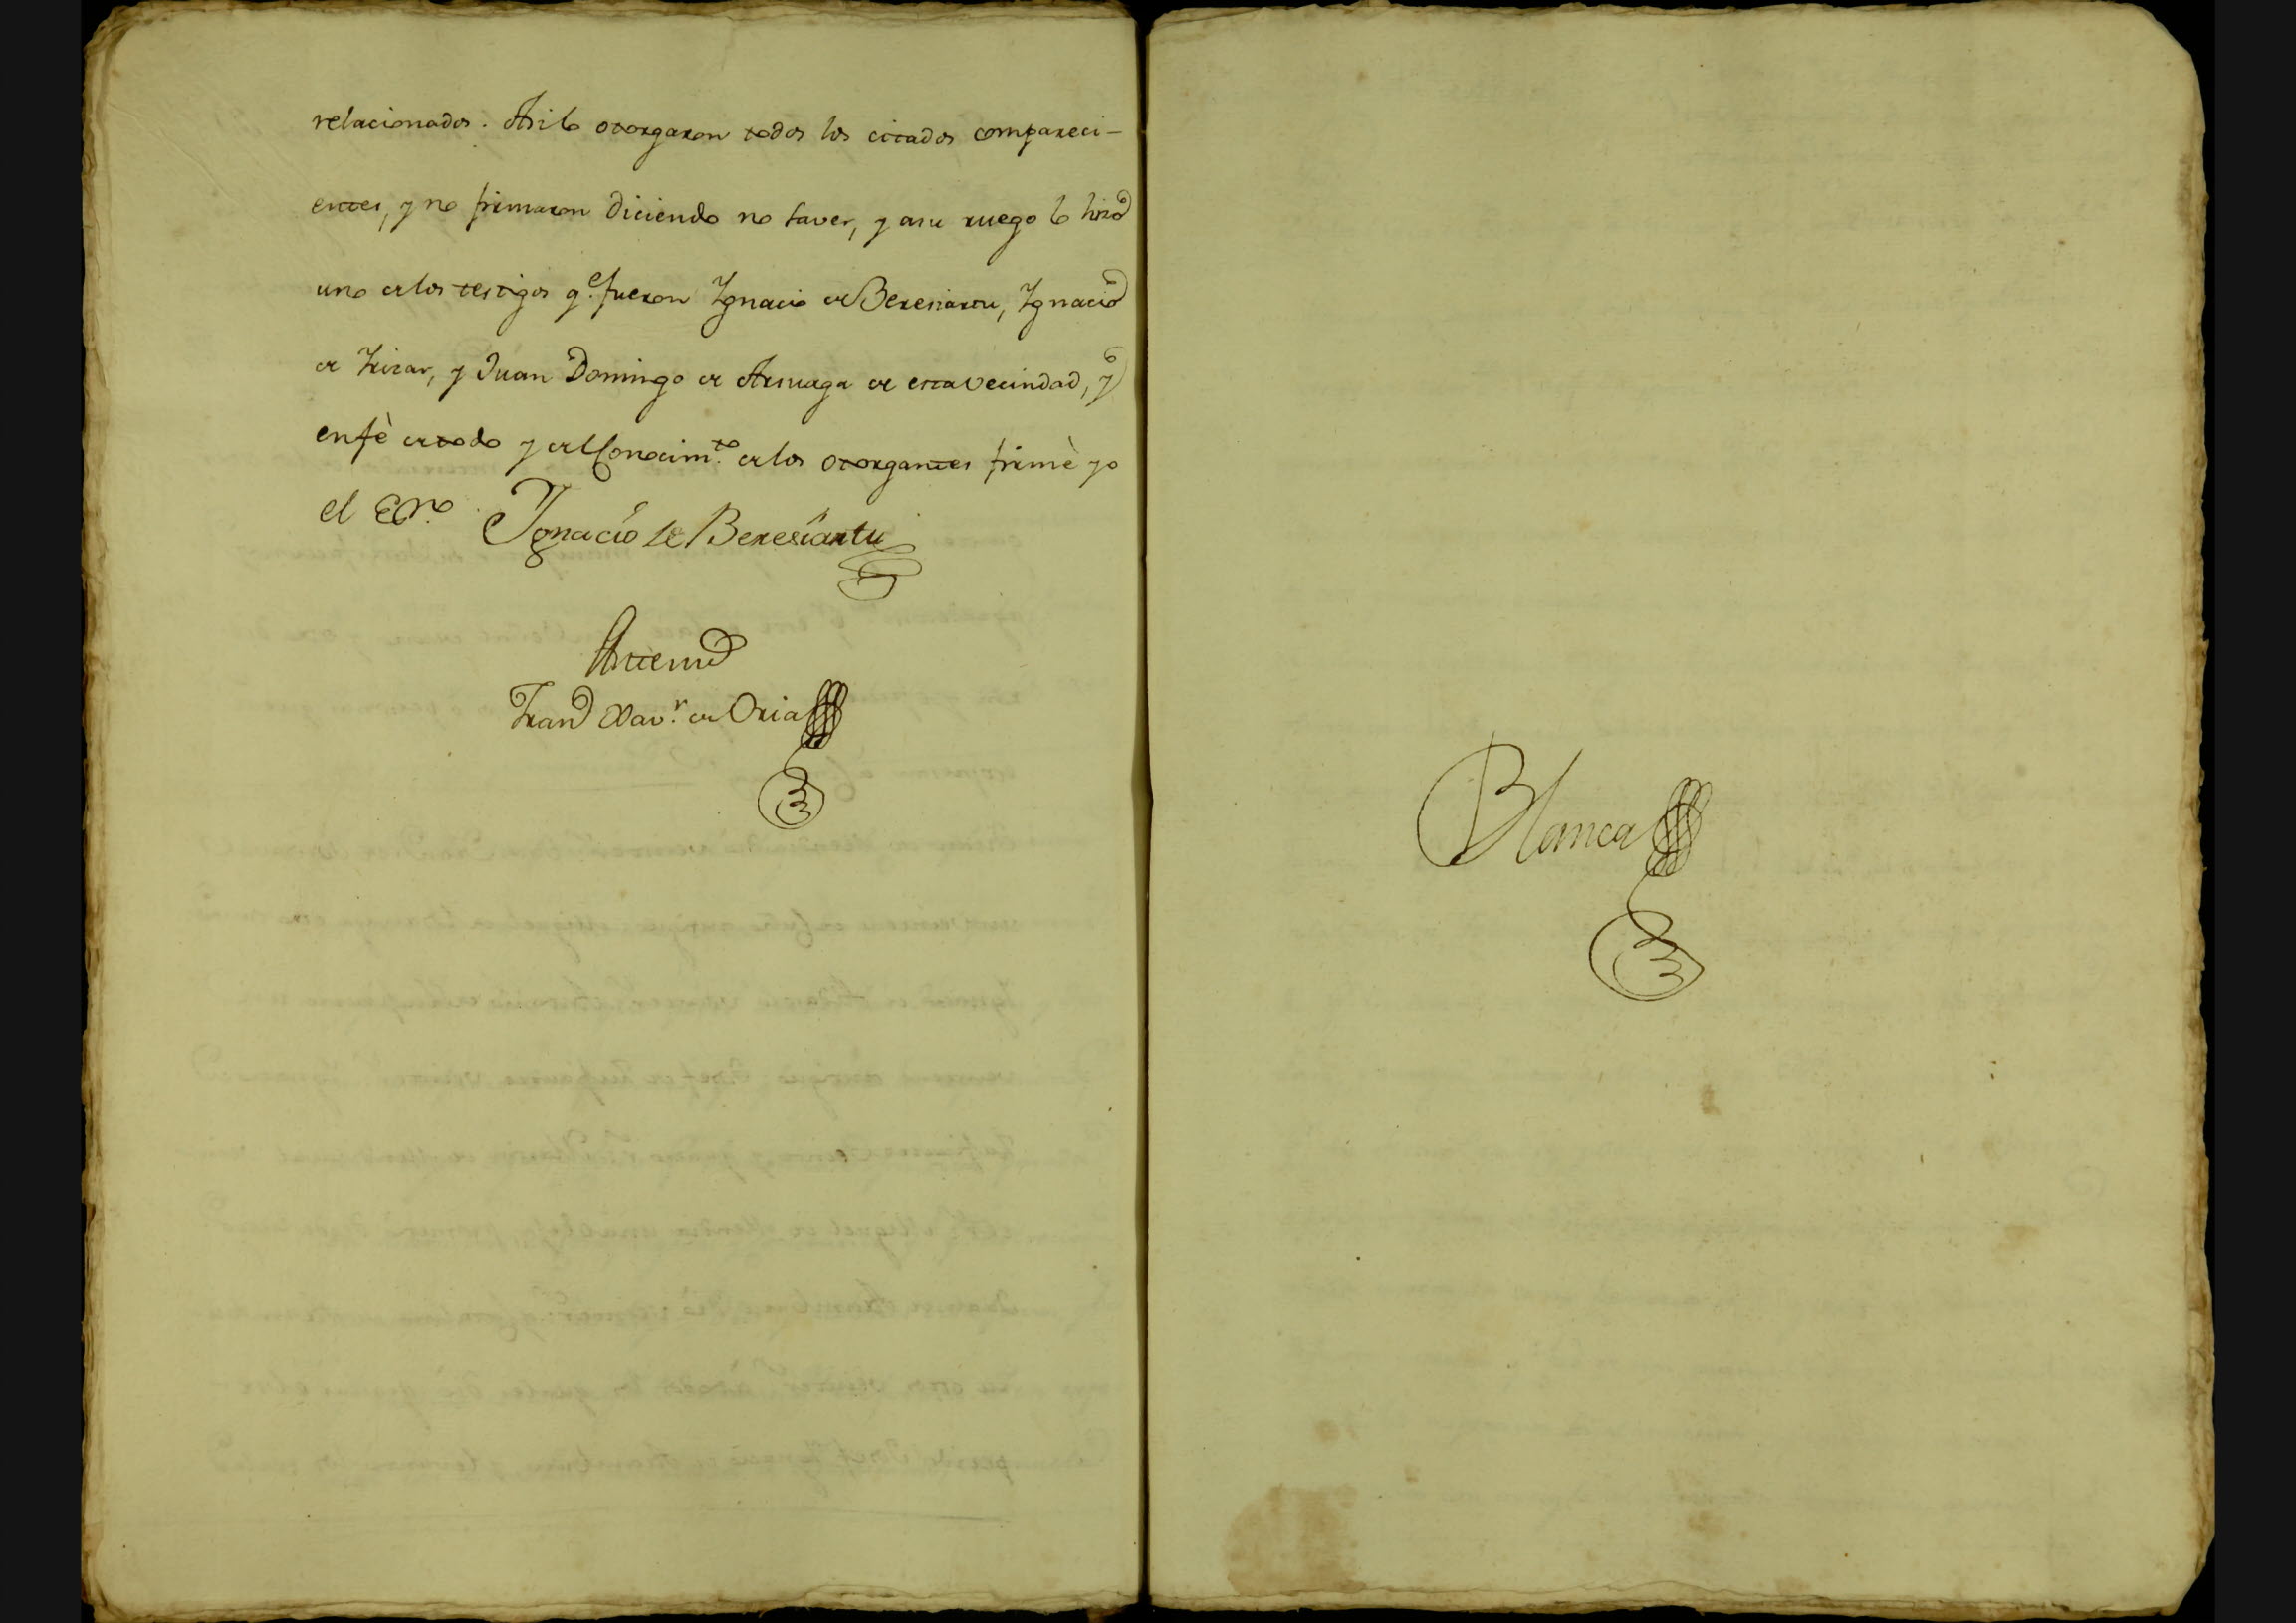 relacionados. Asi lo otorgaron todos los citados compareci-
entes, y no firmaron diciendo no saver, y asu ruego lo hizo
uno de los testigos q.e fueron Ignacio de Beresiartu, Ignacio
de Irizar, y Juan Domingo de Arsuaga de esta vecindad, y
en fè de todo y del Conocim.to de los otorgantes firmè yo
el Ess.no
Ignacio de Beresiartu
Antemi
Fran.co Xav.r de Oria
Blanca